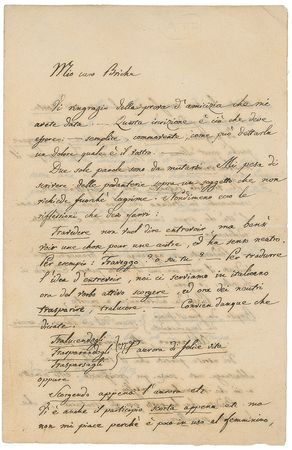 Mio caro Briche
Vi ringrazio della prova d'amicizia che mi
avete data .... Questa inscizione è ciò che deve
essere, semplice, commovente, come può dettarla
un dolore quale è il vostro.
Due sole parole sono da mutarsi. Mi pesa di
scrivere delle pedanterie sopra un soggetto che non
richiede fuorchè lagrime. Attendiamo ecco le
riflessioni che devo farvi:
Travedere non vuol dire entrevoir, ma bensì
voir une chose pour une autre, ed ha senso neutro.
Per esempio: Traveggo? o sei tu? — Per tradurre
l'idea d'entrevoir, noi ci serviamo in italiano
ora del verbo attivo scorgere, ed ora dei neutri
trasparire, tralucere. Convien dunque che
diciate:
Tralucendogli
Trasparendogli
Trasparsagli
aurora di felice vita
oppure
Scorgendo appena l'aurora etc
Vi è anche il participio scorta appena etc ma
non mi piace perchè è poco in uso al femminino,